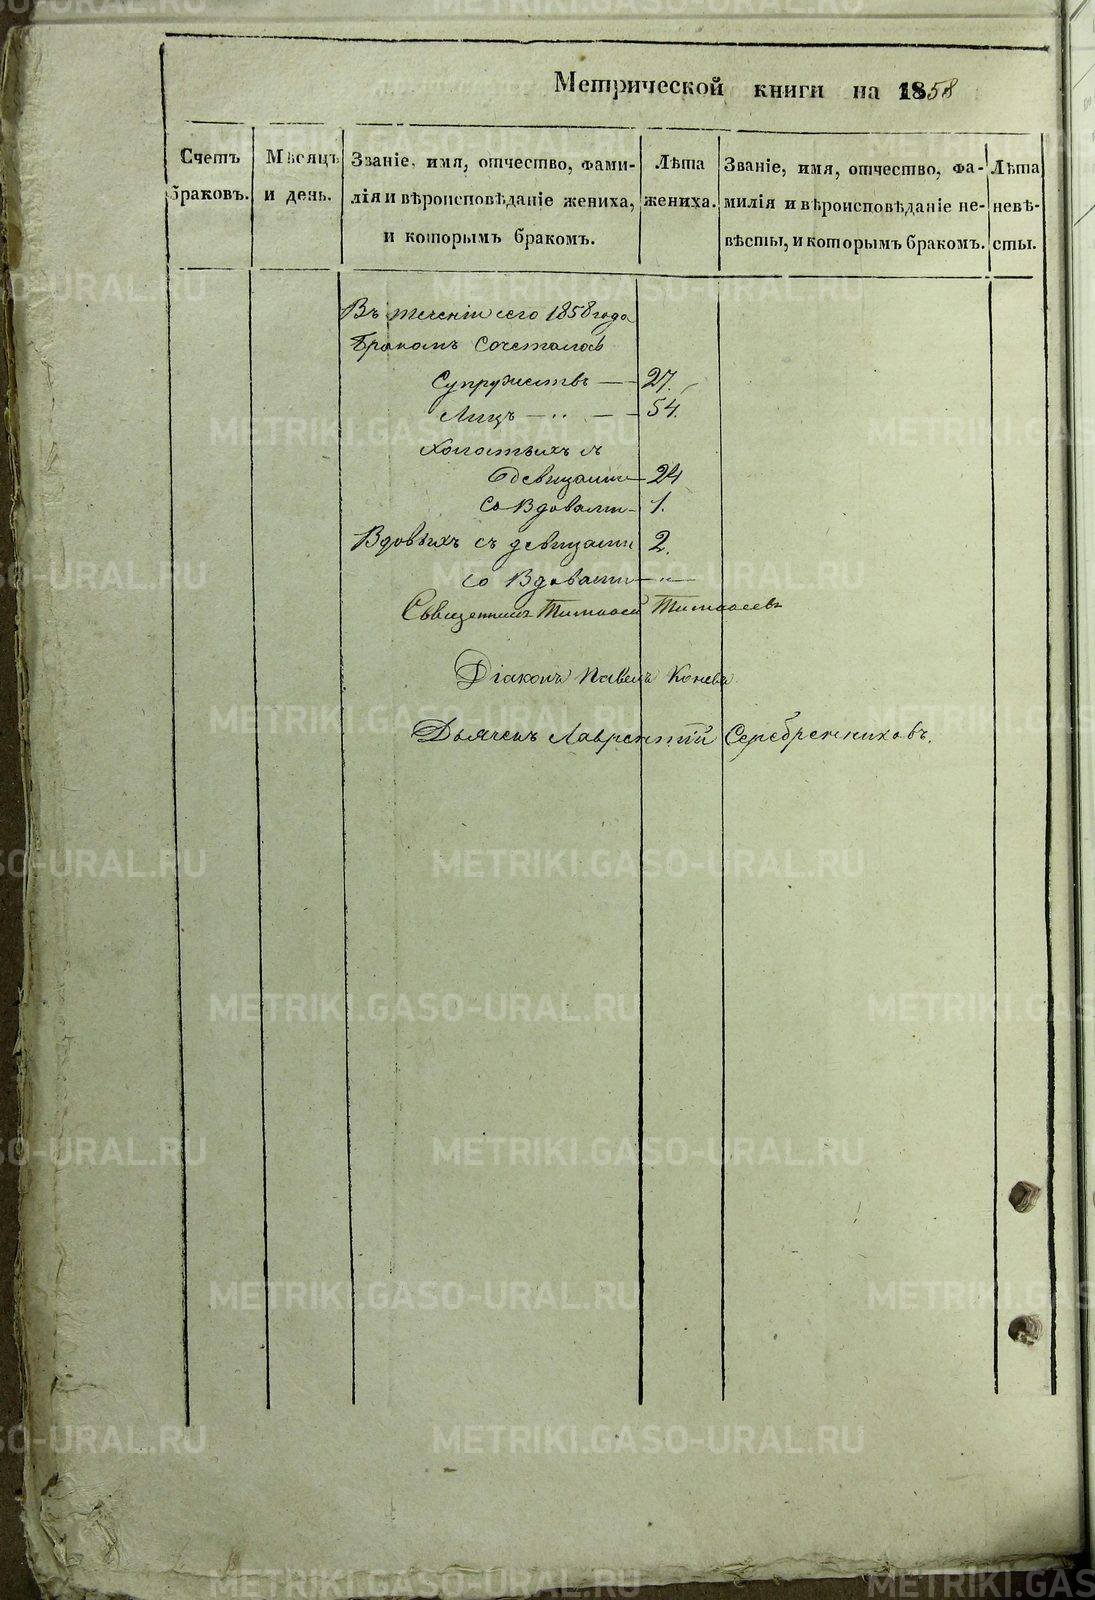 Метрической книги на 1858
Счетъ браковъ.
Мѣсяцъ и день.
Званіе, имя, отчество, фами-
лія и вѣроисповѣданіе жениха,
и которымъ бракомъ.
Лѣта
жениха.
Званіе, имя, отчество, фа-
милія и вѣроисповѣданіе не-
вѣсты, и которымъ бракомъ.
Лѣта
невѣ-
сты.
Въ теченіи сего 1858 года
бракомъ сочеталось
Супружествъ — 27.
Лицъ — „ — 54.
Холостыхъ съ
дѣвицами — 24
со вдовами — 1.
Вдовыхъ съ дѣвицами 2.
со вдовами — „ —
Священникъ Тимоѳей Тимоѳеевъ
Діаконъ Павелъ Коневъ
Дьячекъ Лаврентій Серебренниковъ.
METRIKI.GASO-URAL.RU